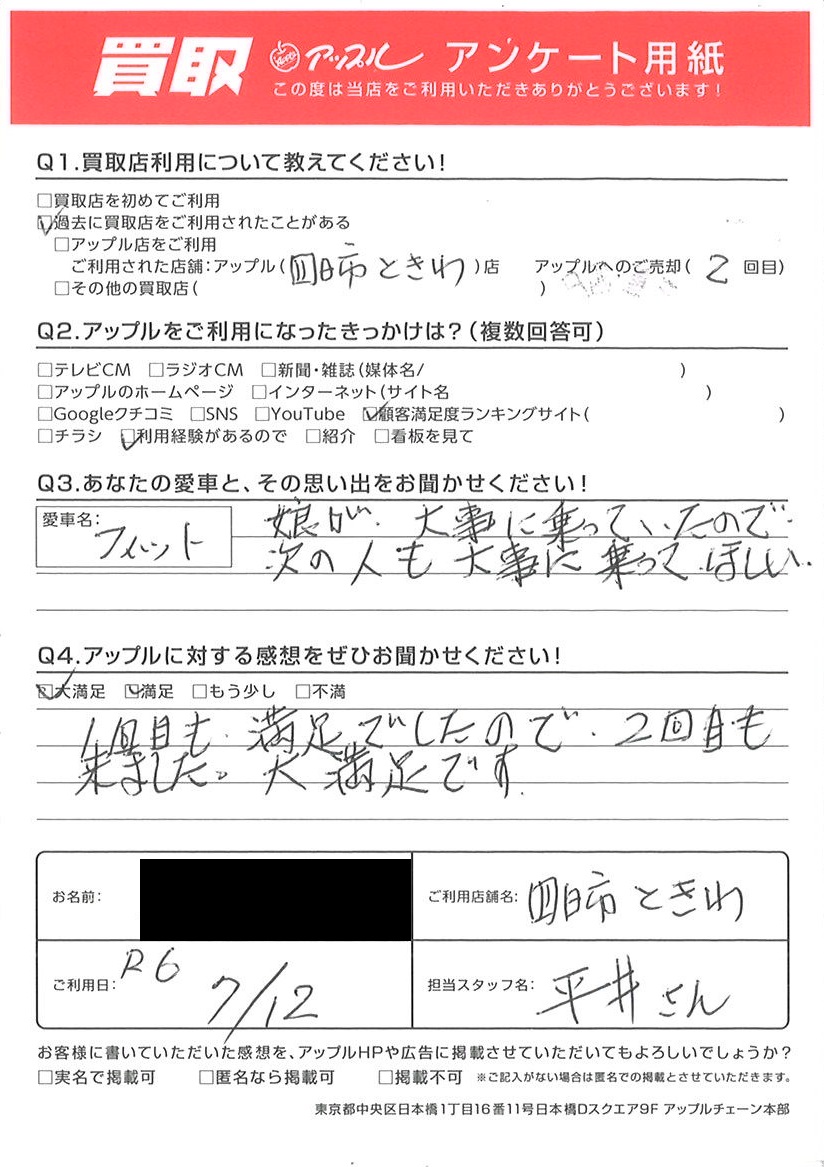 買取 アップル アンケート用紙
この度は当店をご利用いただきありがとうございます!
Q1.買取店利用について教えてください!
□買取店を初めてご利用
☑過去に買取店をご利用されたことがある
□アップル店をご利用
ご利用された店舗:アップル(四日市ときわ)店 アップルへのご売却(2回目)
□その他の買取店( )
Q2.アップルをご利用になったきっかけは?(複数回答可)
□テレビCM □ラジオCM □新聞・雑誌(媒体名/ )
□アップルのホームページ □インターネット(サイト名 )
□Googleクチコミ □SNS □YouTube ☑顧客満足度ランキングサイト( )
□チラシ ☑利用経験があるので □紹介 □看板を見て
Q3.あなたの愛車と、その思い出をお聞かせください!
愛車名: フィット
娘が、大事に乗っていたので
次の人も大事に乗ってほしい。
Q4.アップルに対する感想をぜひお聞かせください!
☑大満足 ☑満足 □もう少し □不満
1回目も、満足でしたので、2回目も
来ました。大満足です。
お名前: ご利用店舗名: 四日市ときわ
ご利用日: R6 7/12 担当スタッフ名: 平井さん
お客様に書いていただいた感想を、アップルHPや広告に掲載させていただいてもよろしいでしょうか?
□実名で掲載可 □匿名なら掲載可 □掲載不可 ※ご記入がない場合は匿名での掲載とさせていただきます。
東京都中央区日本橋1丁目16番11号日本橋Dスクエア9F アップルチェーン本部